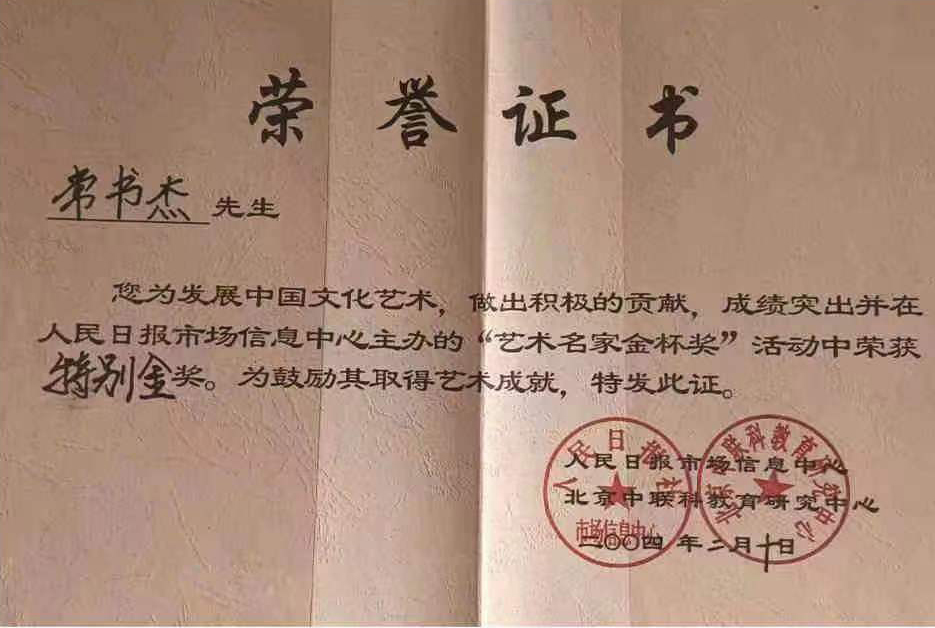 荣誉证书
常书杰 先生
您为发展中国文化艺术，做出积极的贡献，成绩突出并在
人民日报市场信息中心主办的“艺术名家金杯奖”活动中荣获
特别金奖。为鼓励其取得艺术成就，特发此证。
人民日报社
市场信息中心
北京中联科教育研究中心
人民日报市场信息中心
北京中联科教育研究中心
二〇〇四年二月十日